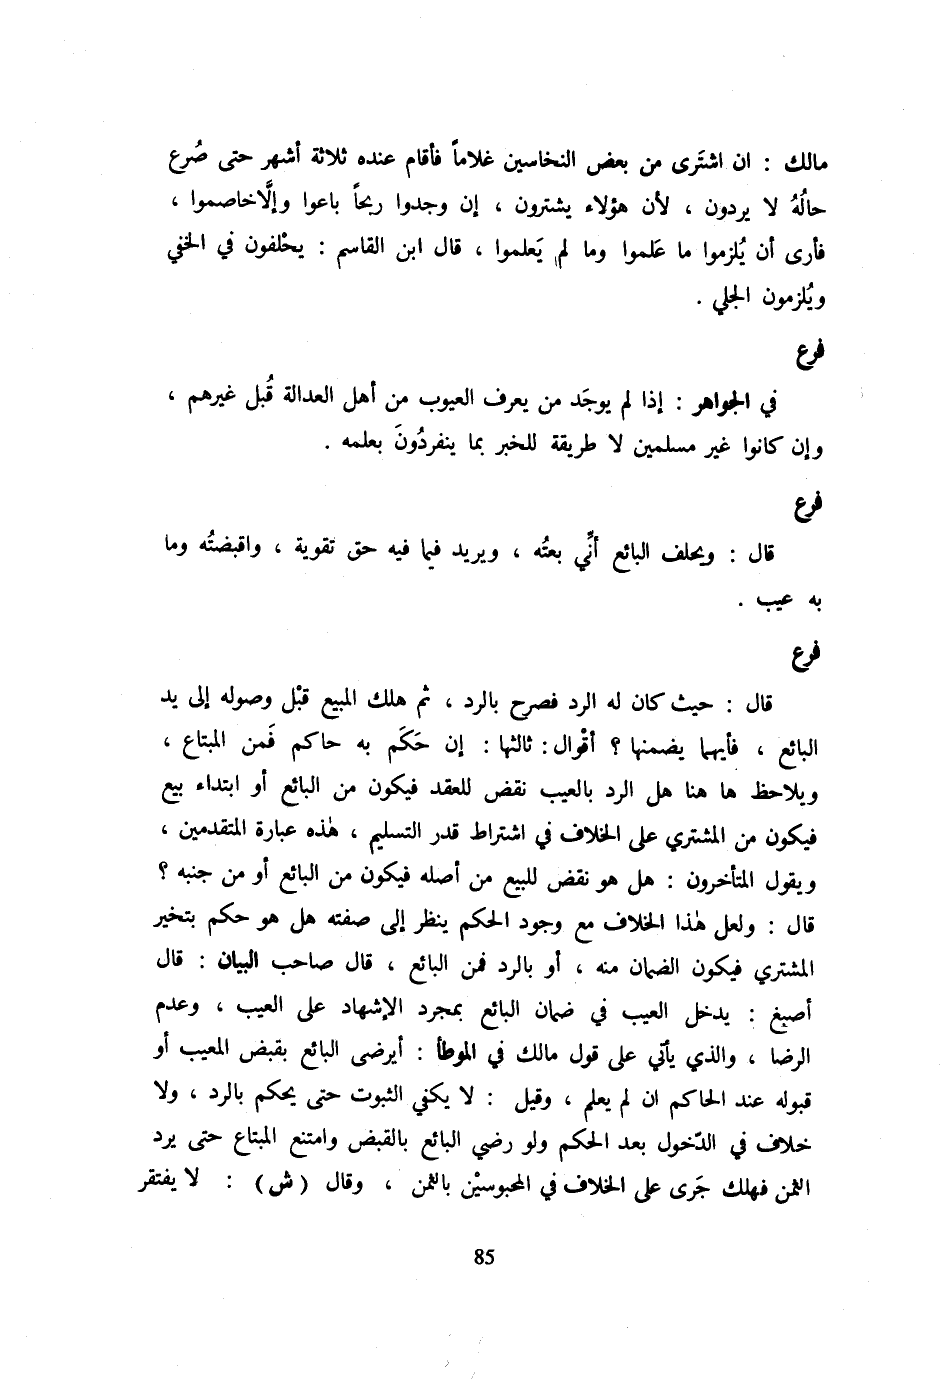 مالك : ان اشتَرى من بعض النخاسين غلاماً فأقام عنده ثلاثة أشهر حتى صُرع
حالُهُ لا يردون ، لأن هؤلاء يشترون ، إن وجدوا ربحاً باعوا وإلَّا خاصموا ،
فأرى أن يُلزموا ما عَلموا وما لم يَعلموا ، قال ابن القاسم : يحْلفون في الخفي
ويُلزمون الجلي .
فرع
في الجواهر : إذا لم يوجَد من يعرف العيوب من أهل العدالة قُبل غيرهم ،
وإن كانوا غير مسلمين لا طريقة للخبر بما ينفردُونَ بعلمه .
فرع
قال : ويحلف البائع أنِّي بعتُه ، ويريد فيما فيه حق تقوية ، واقبضتُه وما
به عيب .
فرع
قال : حيث كان له الرد فصرح بالرد ، ثم هلك المبيع قبْل وصوله إلى يد
البائع ، فأيهما يضمنها ؟ أقْوال : ثالثها : إن حَكَم به حاكم فَمن المبتاع ،
ويلاحظ ها هنا هل الرد بالعيب نقض للعقد فيكون من البائع أو ابتداء بيع
فيكون من المشتري على الخلاف في اشتراط قدر التسليم ، هٰذه عبارة المتقدمين ،
ويقول المتأخرون : هل هو نقض للبيع من أصله فيكون من البائع أو من جنبه ؟
قال : ولعل هٰذا الخلاف مع وجود الحكم ينظر إلى صفته هل هو حكم بتخير
المشتري فيكون الضمان منه ، أو بالرد فمن البائع ، قال صاحب البيان : قال
أصبغ : يدخل العيب في ضمان البائع بمجرد الإشهاد على العيب ، وعدم
الرضا ، والذي يأتي على قول مالك في الموطأ : أيرضى البائع بقبض المعيب أو
قبوله عند الحاكم ان لم يعلم ، وقيل : لا يكفي الثبوت حتى يحكم بالرد ، ولا
خلاف في الدّخول بعد الحكم ولو رضي البائع بالقبض وامتنع المبتاع حتى يرد
الثمن فهلك جَرى على الخلاف في المحبوسيْن بالثمن ، وقال ( ش ) : لا يفتقر
85